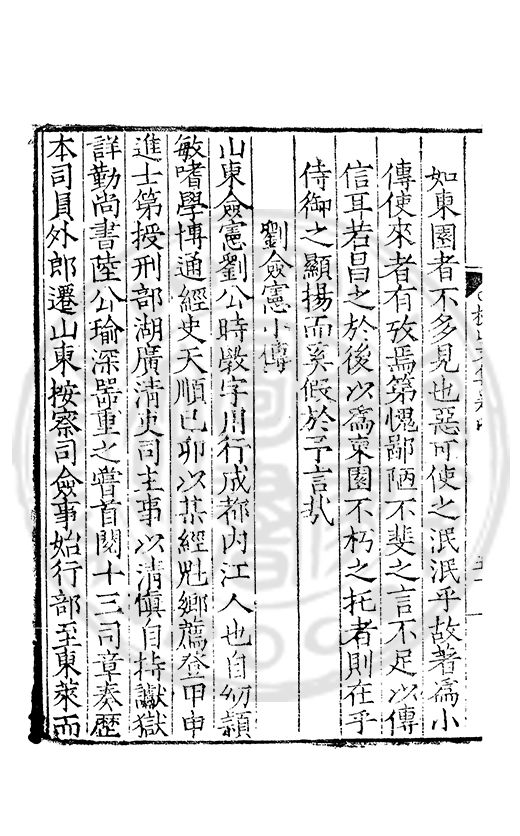 如東園者不多見也惡可使之泯泯乎故著爲小
傳使來者有攷焉第愧鄙陋不斐之言不足以傳
信耳若昌之於後以爲東園不朽之托者則在乎
侍御之顯揚而奚假於予言哉
劉僉憲小傳
山東僉憲劉公時斅字用行成都内江人也自幼穎
敏嗜學博通經史天順已卯以某經魁鄉薦登甲申
進士第授刑部湖廣清吏司主事以清愼自持讞獄
詳勤尚書陸公瑜深器重之嘗首閱十三司章奏歷
本司員外郎遷山東按察司僉事始行部至東萊而